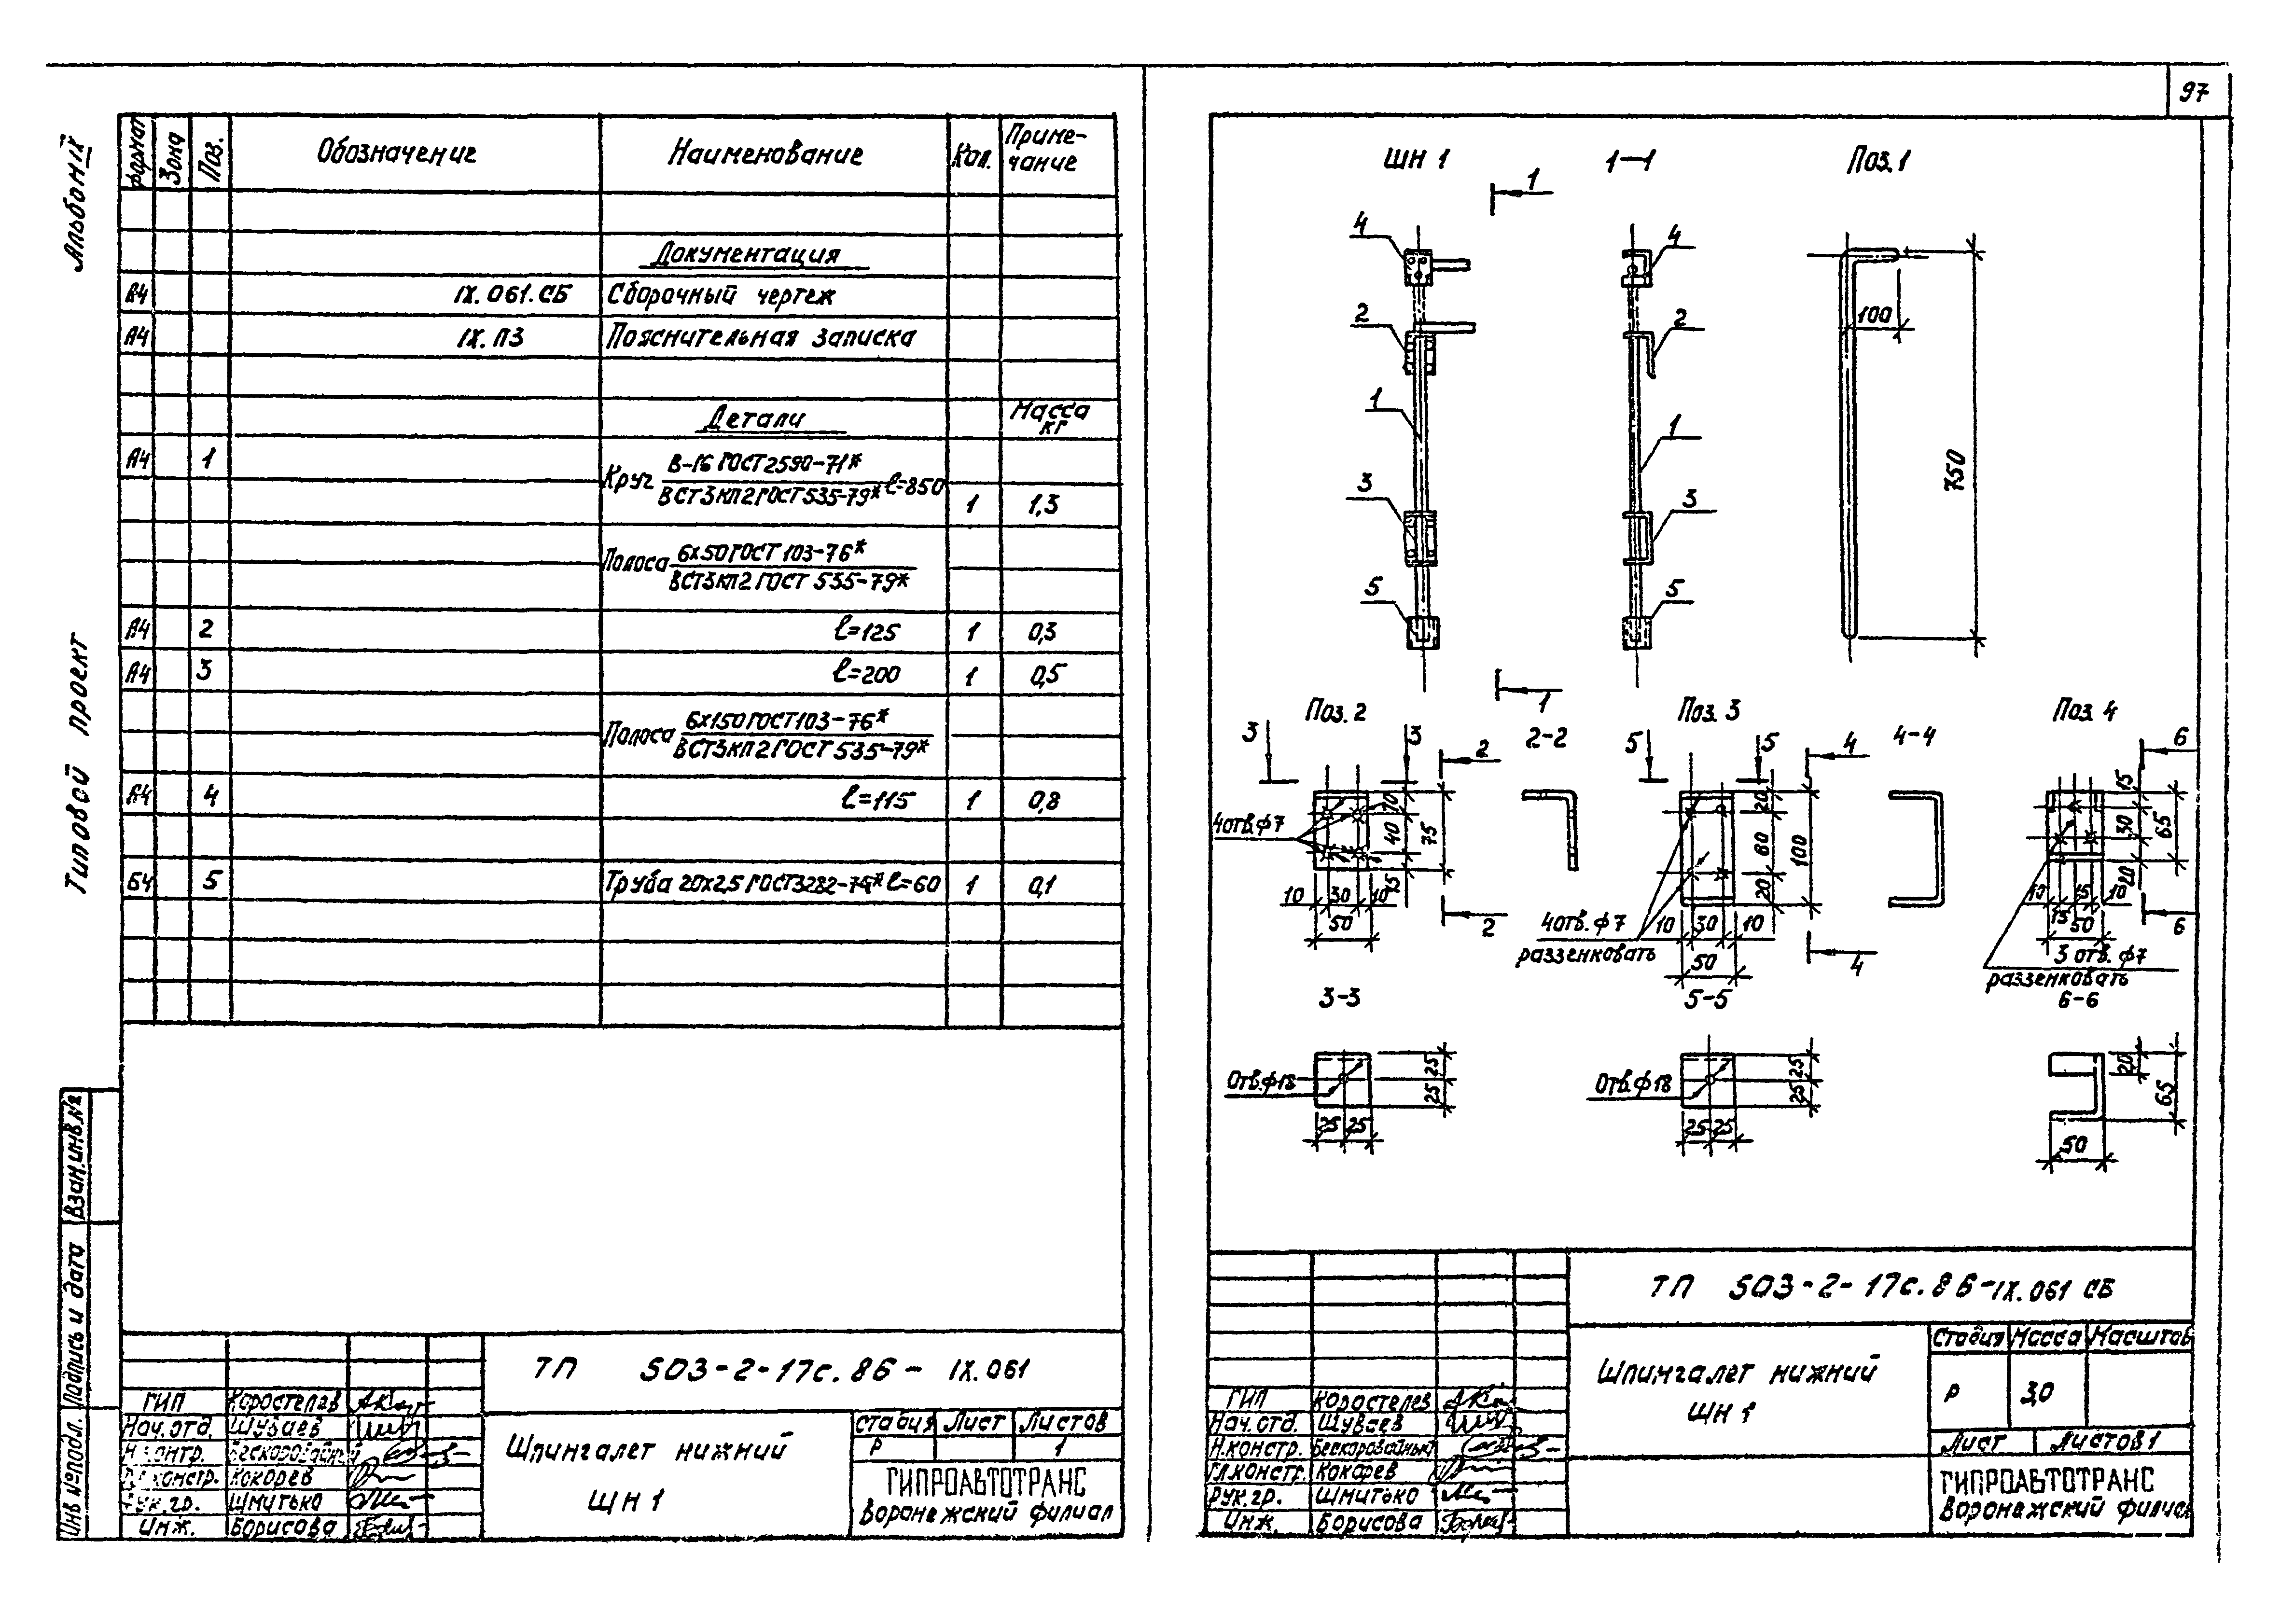 97
Альбом IX
Типовой проект
Инв № подл. Подпись и дата Взам.инв.№
Формат Зона Поз. Обозначение Наименование Кол. Приме-
чание
Документация
А4 IX.061.СБ Сборочный чертеж
А4 IX.ПЗ Пояснительная записка
Детали Масса
кг
А4 1 Круг В-16 ГОСТ 2590-71*
ВСТ3КП2 ГОСТ 535-79* ℓ=850 1 1,3
Полоса 6х50 ГОСТ 103-76*
ВСТ3КП2 ГОСТ 535-79*
А4 2 ℓ=125 1 0,3
А4 3 ℓ=200 1 0,5
Полоса 6х150 ГОСТ 103-76*
ВСТ3КП2 ГОСТ 535-79*
А4 4 ℓ=115 1 0,8
Б4 5 Труба 20х2,5 ГОСТ 3282-74* ℓ=60 1 0,1
ТП 503-2-17с.86- IX.061
ГИП Коростелев
Нач.отд. Шуваев
Н.контр. Бескоровайный
Гл.констр. Кокорев
Рук.гр. Шмитько
Инж. Борисова
Шпингалет нижний
ШН 1
Стадия Лист Листов
Р 1
ГИПРОАВТОТРАНС
Воронежский филиал
ШН 1 1-1 Поз.1
1
4 4
2 2
1 1
3 3
5 5
1
100
750
Поз. 2 2-2 Поз. 3 4-4 Поз. 4
3 3 2 5 5 4 6
4отв.ф7
20 40 15 75
10 30 10
50
2
20 60 20 100
4отв. ф7
раззенковать
10 30 10
50
4
15 30 20 65
10 15 15 10
50
6
3 отв. ф7
раззенковать
3-3 5-5 6-6
Отв.ф18
25 25
25 25
Отв.ф18
25 25
25 25
20 65
50
ТП 503-2-17с.86-IX.061 СБ
ГИП Коростелев
Нач.отд. Шуваев
Н.констр. Бескоровайный
Гл.констр. Кокорев
Рук.гр. Шмитько
Инж. Борисова
Шпингалет нижний
ШН 1
Стадия Масса Масштаб
Р 3,0
Лист Листов 1
ГИПРОАВТОТРАНС
Воронежский филиал